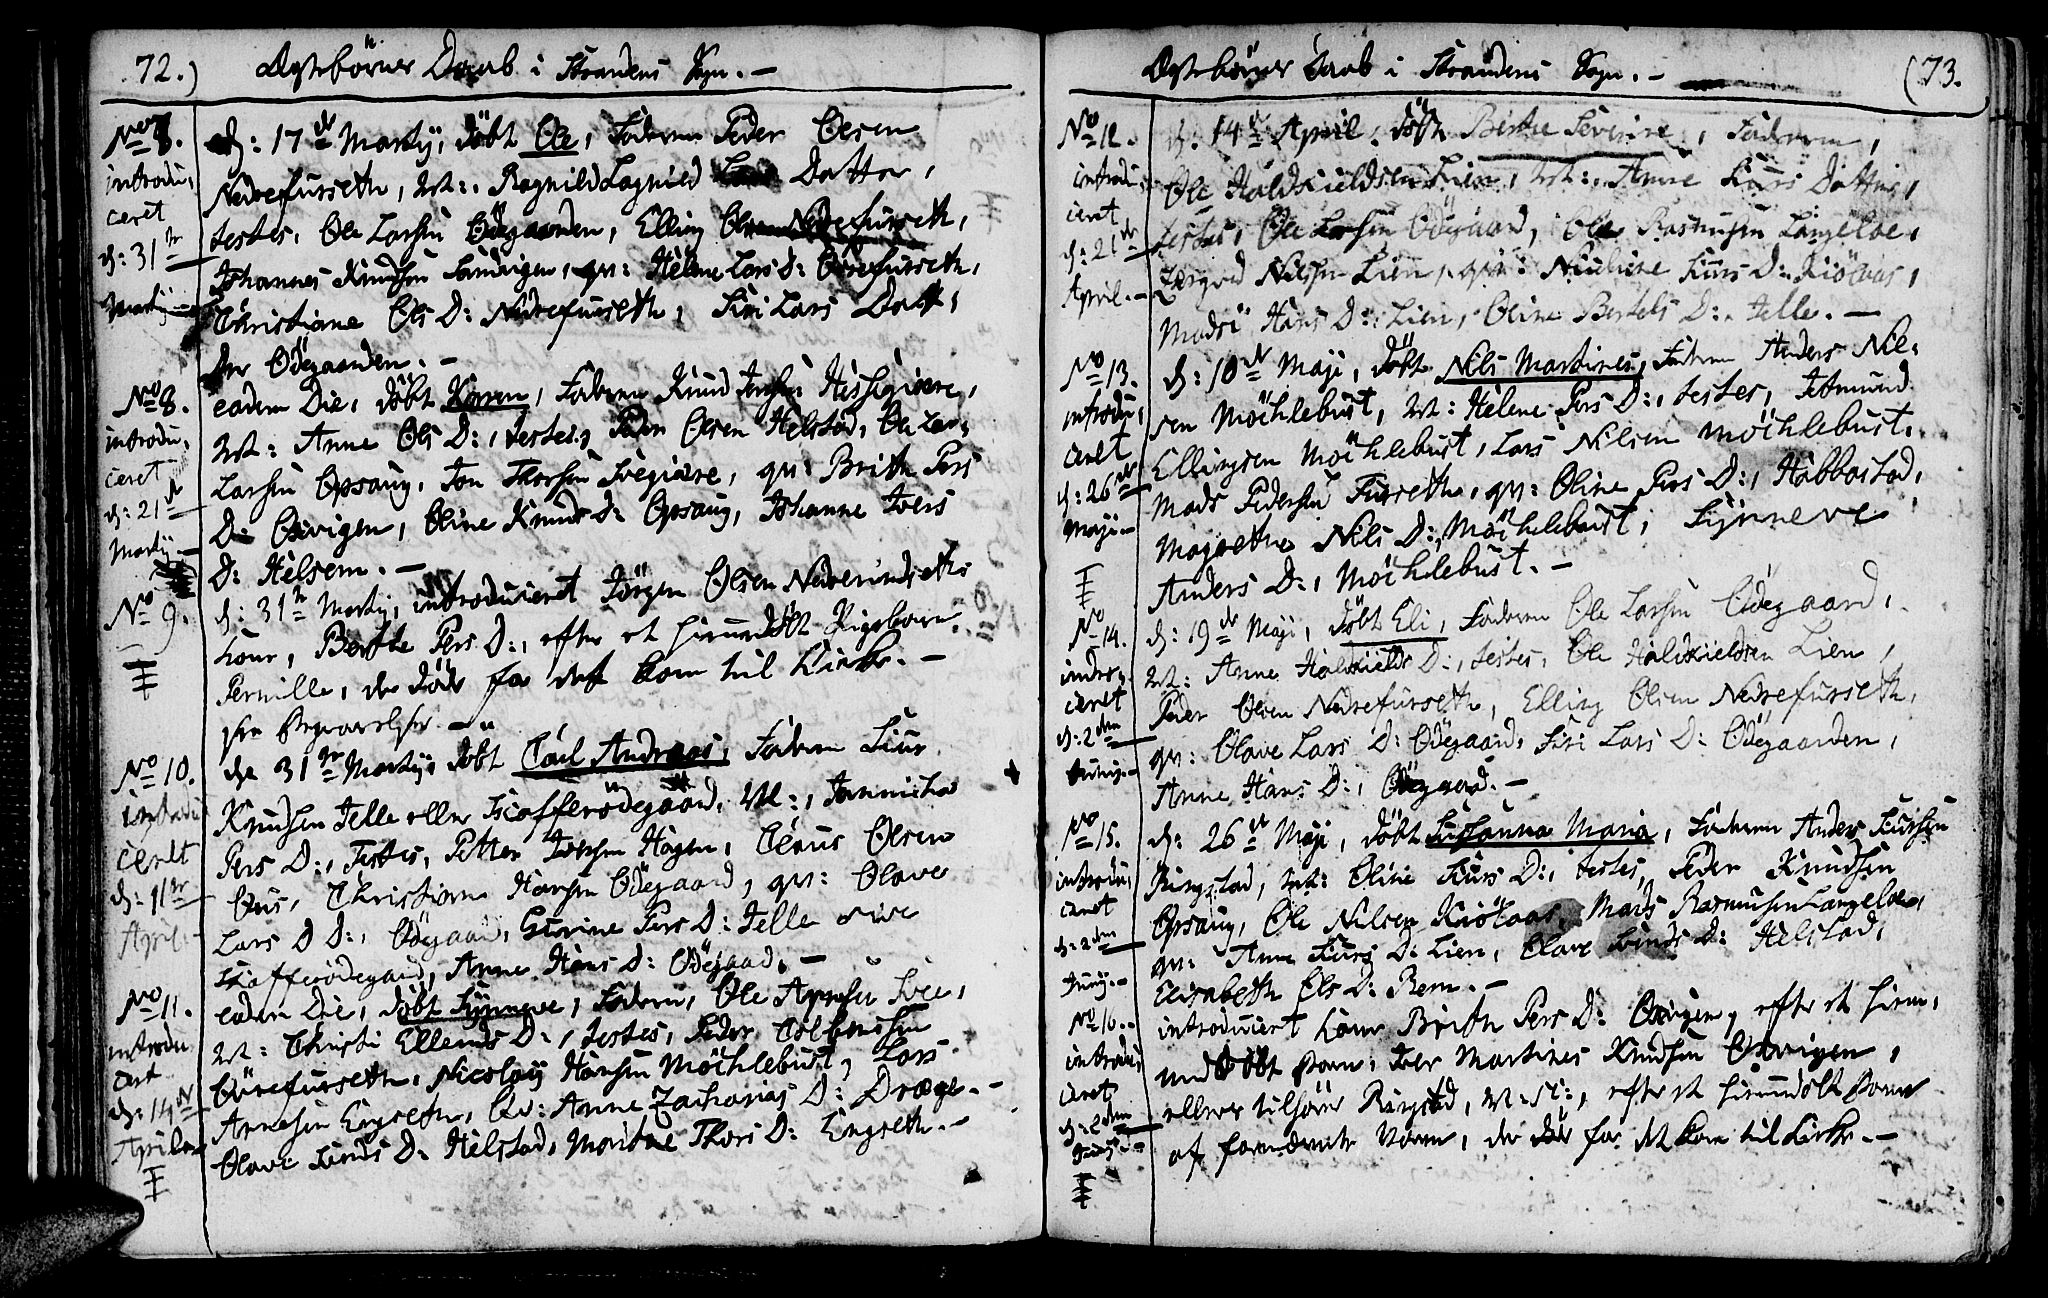 72.) Ægtebörner Daab i Strandens Sogn. —
No 7.
introdu,
ceret
d: 31te
Martij —
d: 17de Martij, döbt Ole, Faderen Peder Olsen
Nedrefurseth, M: Ragnild Lagnild Datter,
testes, Ole Larsen Ödegaarden, Elling Olsen Nedrefurseth,
Johannes Knudsen Sandvigen, qv: Helene Lars D: Övrefurseth,
Christiane Ols D: Nedrefurseth, Siri Lars Datt,
ter Ödegaarden. —
No 8.
introdu,
ceret
d: 21de
Martij —
eadem Die, döbt Karen, Faderen Knud
M: Anne Ols D:, testes, Peder Olsen Helstad, Ole Lar,
Larsen Opsaug, Jon Thorsen, qv: Brith Pers
D: Osvigen, Oline Knuds D: Opsaug, Johanne Ivers
D: Helsem. —
No 9.
d: 31te Martij, introduceret Jörgen Olsen
Kone, Berthe Pers D:, efter et hiemmedöbt Pigebarn
Pernille, der döde for det kom til Kirke. —
No 10.
introdu
ceret
d: 11te
April. —
de 31te Martij, döbt Carl Andreas, Faderen Siur
Knudsen Telle eller Skafferödegaard, M:, Jannicha
Pers D:, Testes, Petter Iversen Hagen, Claus Olsen
Öus, Christian Hansen Ödegaard, qv: Olave
Lars D D:, Ödegaard, Gurine Pers D: Telle sive
Skafferödegaard, Anne Hans D: Ödegaard. —
No 11.
introdu
ceret
d: 14de
Aprilis
eadem Die, döbt Synneve, Faderen, Ole Arnesen
M: Christi Ellends D:, testes, Peder
Övrefurseth, Nicolay Hansen Möchlebust, Lars
Arnesen Engseth, Qv: Anne Zacharias D: Dræge. —
Olave D: Helstad, Marthe Thors D: Engseth. —
Ægtebörner Daab i Strandens Sogn. — (73.
No 12.
introdu,
ceret
d: 21de
April. —
d: 14de April, döbt Birthe Severine, Faderen,
Ole Haldkieldsen Lien, M:, Anne Siurs Datter,
testes, Ole Larsen Ödegaard, Ole Rasmusen Langeloe,
Nilsen Lien, qv: Siurs D: Kiölaas,
Madsi Hans D: Lien, Oline Bertels D: Telle. —
No 13.
introdu,
ceret
d: 26de
Maji —
d: 10de Maji, döbt Nils Martines, Faderen Anders Nil,
sen Möchlebust, M: Helene Pers D:, testes,
Ellingsen Möchlebust, Lars Nilsen Möchlebust,
Mads Pedersen Furseth, qv: Oline Pers D:, Habbastad,
Magrethe Nils D: Möchlebust, Synneve
Anders D:, Möchlebust. —
No 14.
introdu,
ceret
d: 2den
Junij —
d: 19de Maji, döbt Eli, Faderen Ole Larsen Ödegaard,
M: Anne Haldkields D:, testes, Ole Haldkieldsen Lien,
Peder Olsen Nedrefurseth, Elling Olsen Nedrefurseth,
qv: Olave Lars D: Ödegaard, Siri Lars D: Ödegaarden,
Anne Hans D:, Ödegaard. —
No 15.
introdu,
ceret
d: 2den
Junij —
d: 26de Maji, döbt Susanna Maria, Faderen Anders Siursen
Ringstad, M: Oline Siurs D:, testes, Peder Knudsen
Opsaug, Ole Nilsen Kiölaas, Mads Rasmusen Langeloe,
qv: Anne Siurs D: Lien, Olave D: Helstad,
Elisabeth Ols D: Rem. —
No 16.
introdu,
ceret
d: 2den
Junij —
introduceret Kone Brith Pers D: Osvigen, efter et hiem,
medöbt Barn, Iver Martines Knudsen Osvigen,
eller tilforn Ringstad, efter et hiemmedöbt Barn
af fornævnte Navn, der döde for det kom til Kirke. —